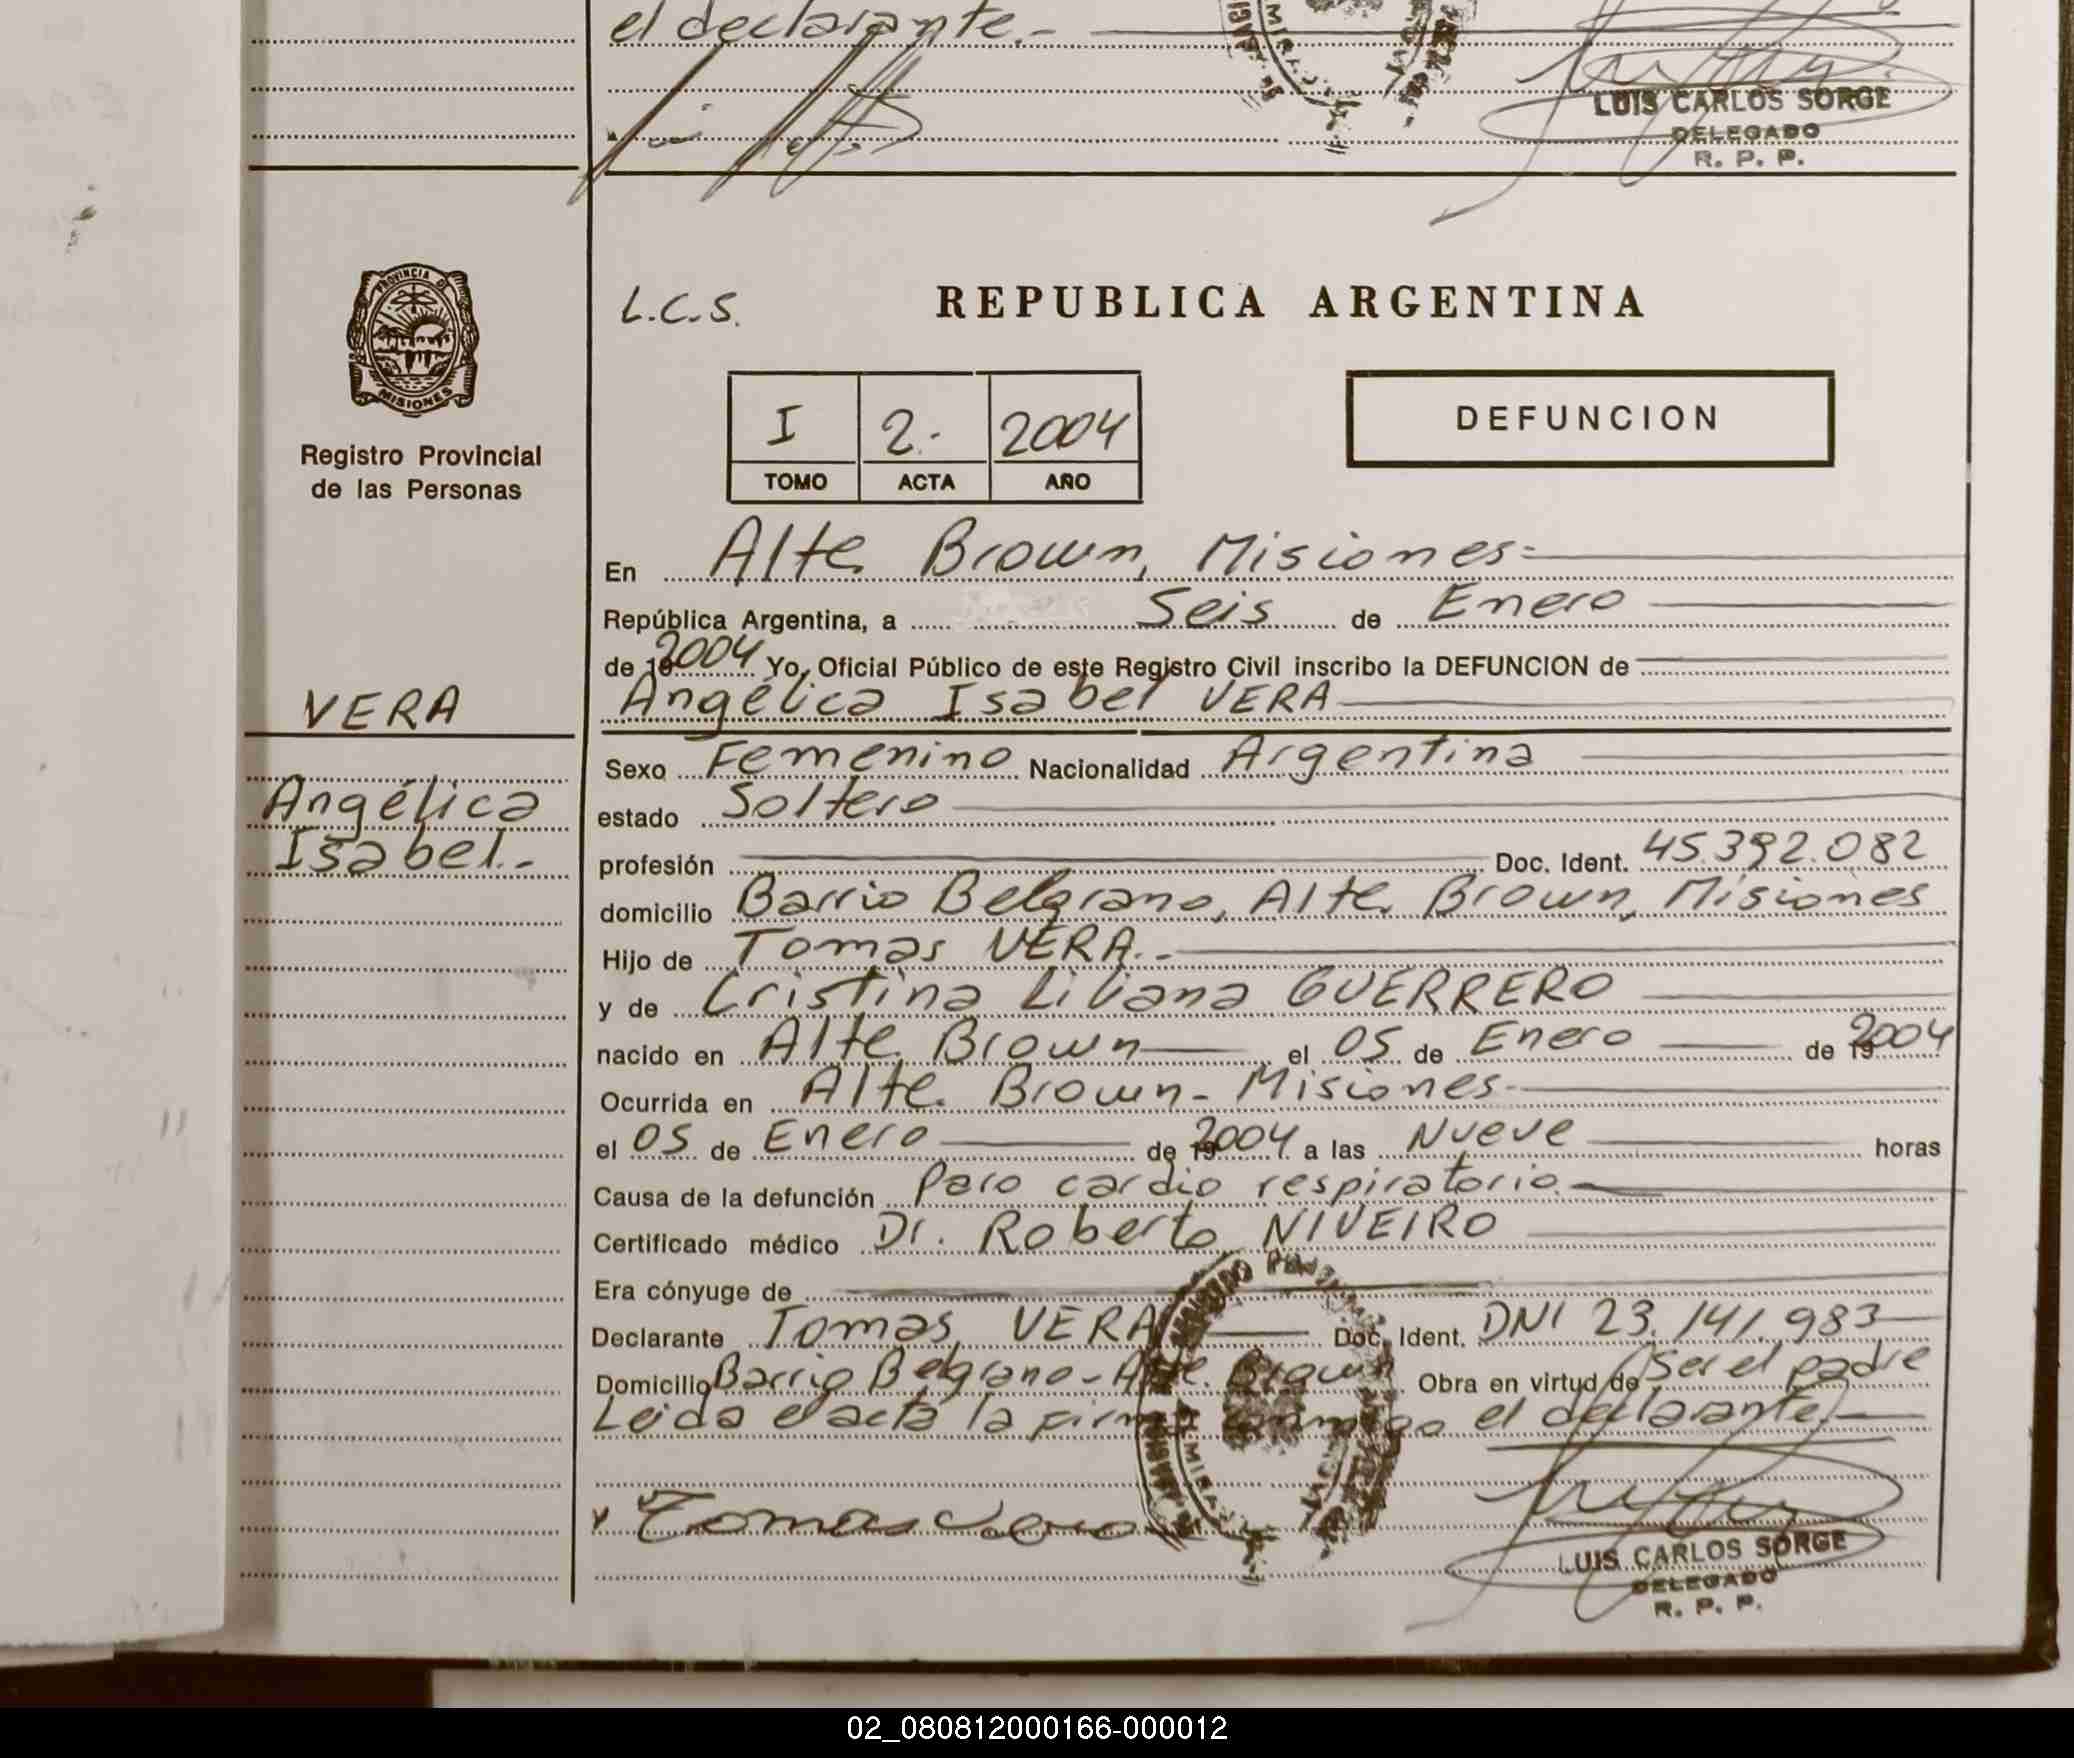 el declarante.-
LUIS CARLOS SORGE
DELEGADO
R. P. P.
PROVINCIA D
MISIONES
Registro Provincial
de las Personas
L.C.S.
REPUBLICA ARGENTINA
I 2.- 2004
TOMO ACTA AÑO
DEFUNCION
En Alte. Brown, Misiones-
República Argentina, a Seis de Enero
de 19 2004 Yo, Oficial Público de este Registro Civil inscribo la DEFUNCION de
Angélica Isabel VERA
VERA
Angélica
Isabel.-
Sexo Femenino Nacionalidad Argentina
estado Soltero
profesión Doc. Ident. 45.392.082
domicilio Barrio Belgrano, Alte. Brown, Misiones
Hijo de Tomas VERA.-
y de Cristina Liliana GUERRERO
nacido en Alte. Brown el 05 de Enero de 19 2004
Ocurrida en Alte. Brown- Misiones-
el 05 de Enero de 19 2004 a las Nueve horas
Causa de la defunción Paro cardio respiratorio.
Certificado médico Dr. Roberto NIVEIRO
Era cónyuge de
Declarante Tomas VERA Doc. Ident. DNI 23.141.983
Domicilio Barrio Belgrano - Alte. Brown Obra en virtud de Ser el padre
Leida el acta la firma conmigo el declarante.
Tomas Vera
LUIS CARLOS SORGE
DELEGADO
R. P. P.
02_080812000166-000012